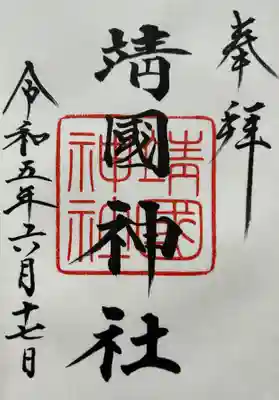 奉拝
靖國神社
靖國神社
令和五年六月十七日